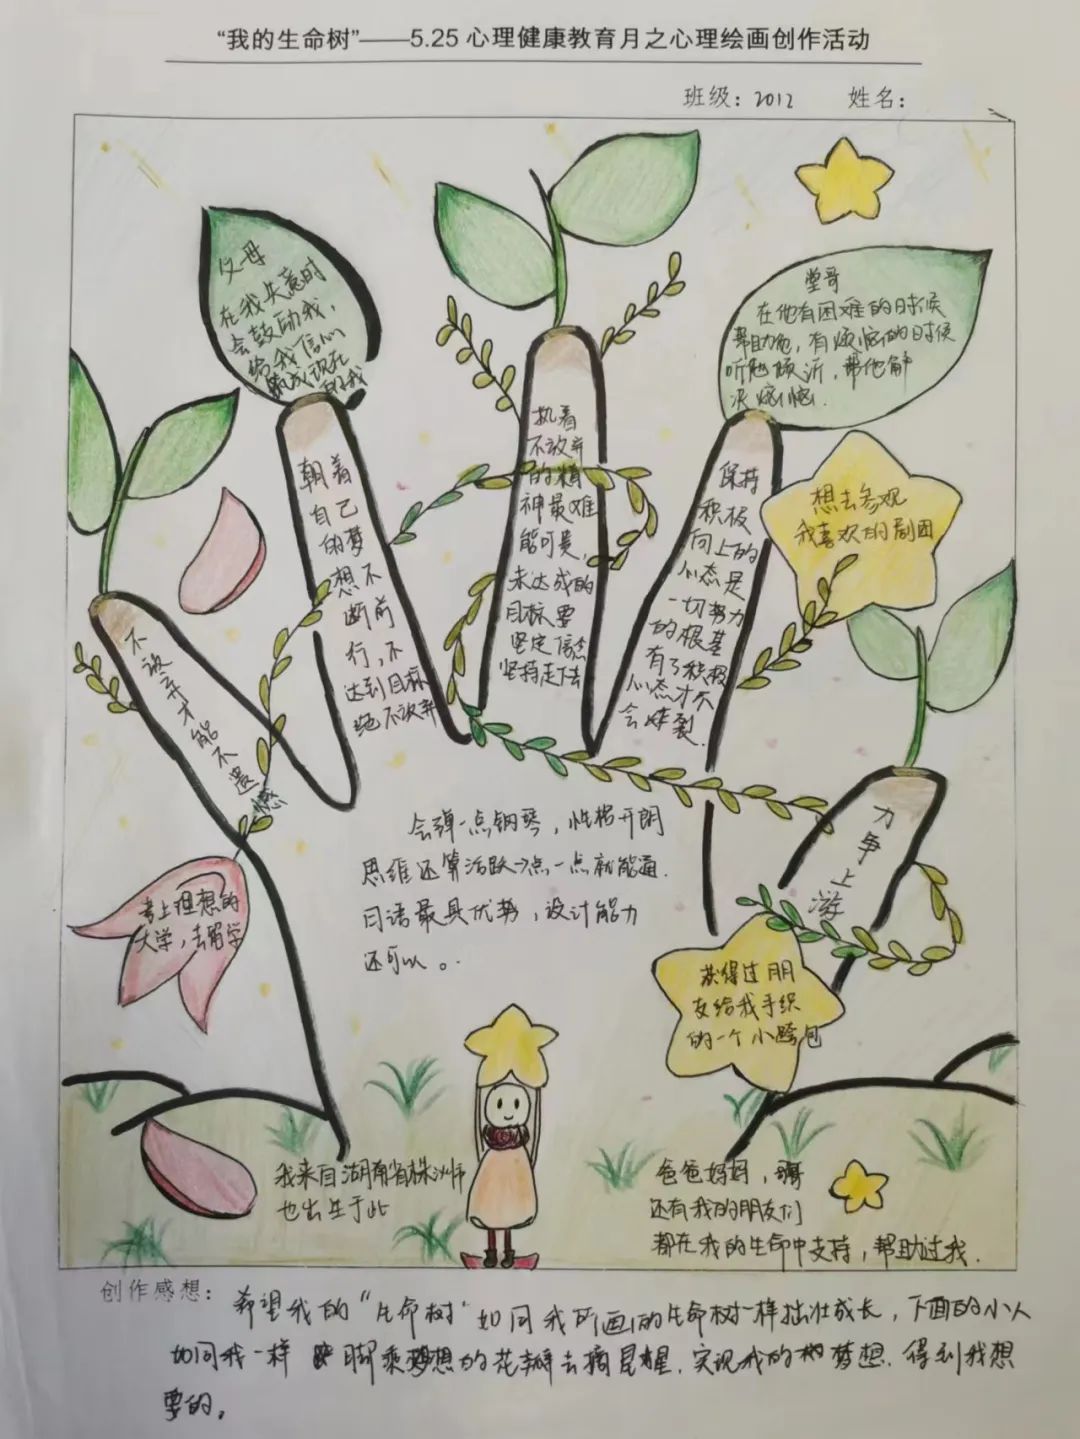 “我的生命树”——5.25 心理健康教育月之心理绘画创作活动
班级：2012 姓名：
父母
在我失意时
会鼓励我，
给我信心
现在
的我
堂哥
在他有困难的时候
帮助他，有烦恼的时候
听他倾诉，帮他解
决烦恼.
想去参观
我喜欢的剧团
不放弃才能不遗憾
朝着
自己
的梦
想不
断前
行，不
达到目标
绝不放弃
执着
不放弃
的精
神最难
能可贵，
未达成的
目标要
坚定信念
坚持走下去
保持
积极
向上的
心态是
一切努力
的根基
有了积极
心态才不
会炸裂.
力争上游
考上理想的
大学，去留学
会弹一点钢琴，性格开朗
思维还算活跃→点一点就能通.
日语最具优势，设计能力
还可以。
获得过朋
友给我手织
的一个小跨包
我来自湖南省株洲市
也出生于此
爸爸妈妈，哥
还有我的朋友们
都在我的生命中支持，帮助过我.
创作感想：希望我的“生命树”如同我所画的生命树一样拙壮成长，下面的小人
如同我一样 脚乘梦想的花瓣去摘星星，实现我的梦想，得到我想
要的。